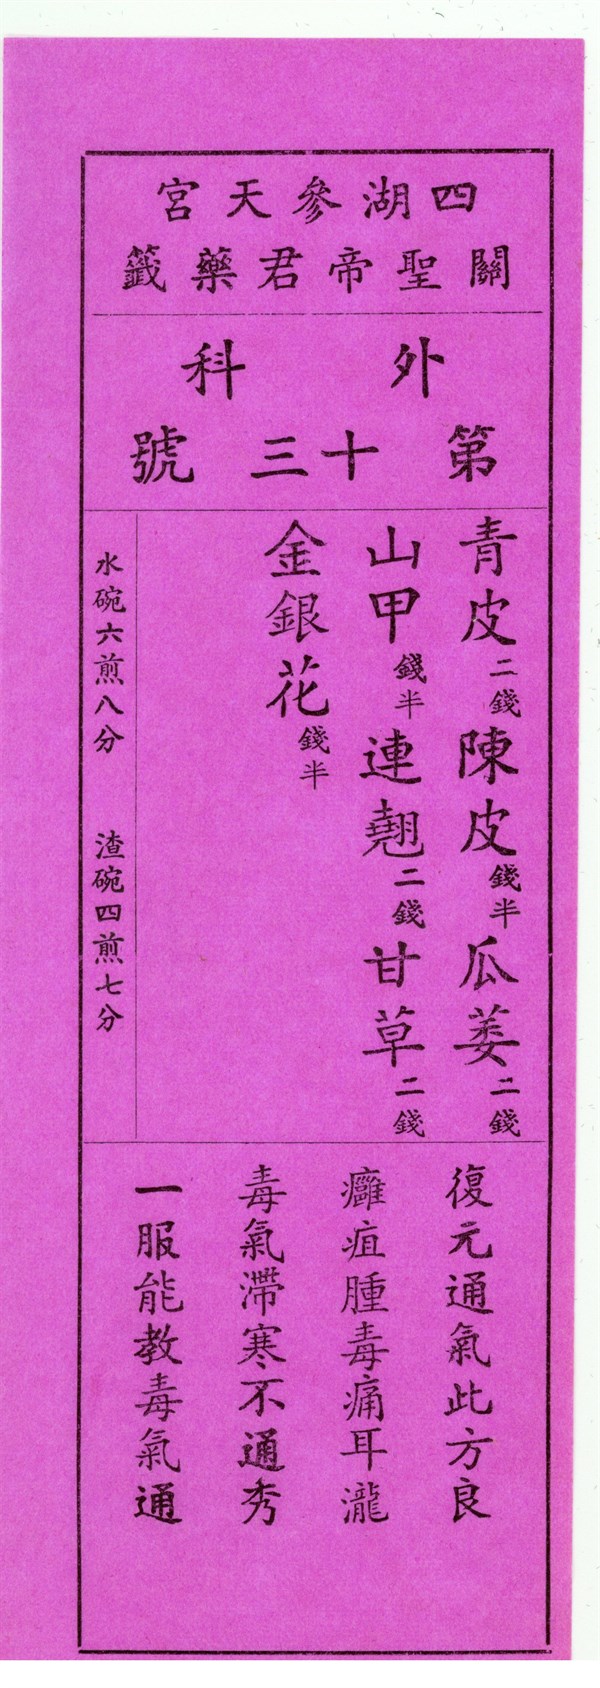 四湖參天宮
關聖帝君藥籤
外科
第十三號
青皮二錢陳皮錢半瓜蒌二錢
山甲錢半連翹二錢甘草二錢
金銀花錢半
水碗六煎八分 渣碗四煎七分
復元通氣此方良
癰疽腫毒痛耳瀧
毒氣滯寒不通秀
一服能教毒氣通